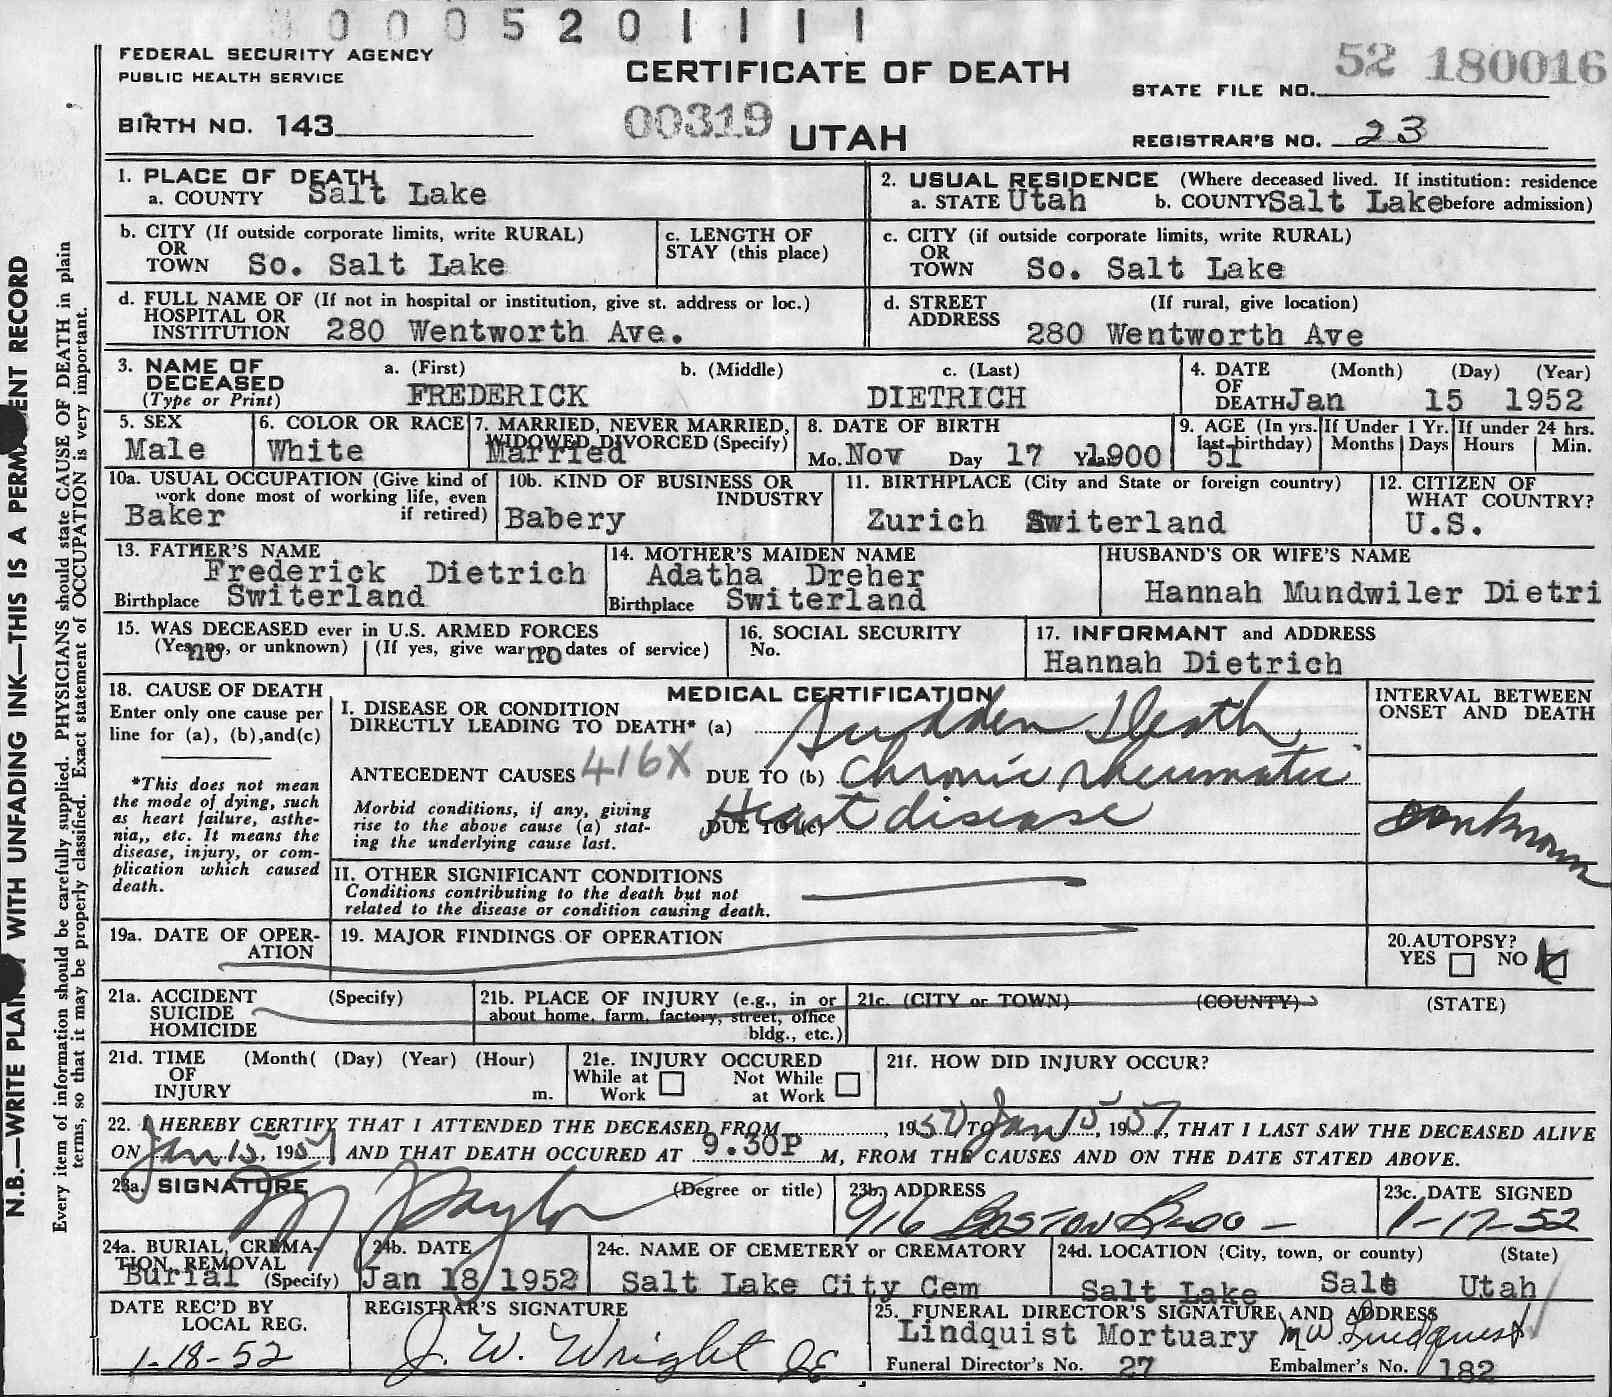 0005201111
FEDERAL SECURITY AGENCY
PUBLIC HEALTH SERVICE
CERTIFICATE OF DEATH
52 180016
STATE FILE NO.
BIRTH NO. 143
00319
UTAH
REGISTRAR'S NO. 23
1. PLACE OF DEATH
a. COUNTY Salt Lake
2. USUAL RESIDENCE (Where deceased lived. If institution: residence
a. STATE Utah b. COUNTY Salt Lake before admission)
b. CITY (If outside corporate limits, write RURAL)
OR
TOWN So. Salt Lake
c. LENGTH OF
STAY (this place)
c. CITY (if outside corporate limits, write RURAL)
OR
TOWN So. Salt Lake
d. FULL NAME OF (If not in hospital or institution, give st. address or loc.)
HOSPITAL OR
INSTITUTION 280 Wentworth Ave.
d. STREET (If rural, give location)
ADDRESS 280 Wentworth Ave
3. NAME OF a. (First) b. (Middle) c. (Last)
DECEASED
(Type or Print) FREDERICK DIETRICH
4. DATE (Month) (Day) (Year)
OF
DEATH Jan 15 1952
5. SEX
Male
6. COLOR OR RACE
White
7. MARRIED, NEVER MARRIED,
WIDOWED DIVORCED (Specify)
Married
8. DATE OF BIRTH
Mo. Nov Day 17 Yr. 1900
9. AGE (In yrs.
last birthday)
51
If Under 1 Yr.
Months Days
If under 24 hrs.
Hours Min.
10a. USUAL OCCUPATION (Give kind of
work done most of working life, even
if retired)
Baker
10b. KIND OF BUSINESS OR
INDUSTRY
Babery
11. BIRTHPLACE (City and State or foreign country)
Zurich Switerland
12. CITIZEN OF
WHAT COUNTRY?
U.S.
13. FATHER'S NAME
Frederick Dietrich
Birthplace Switerland
14. MOTHER'S MAIDEN NAME
Adatha Dreher
Birthplace Switerland
HUSBAND'S OR WIFE'S NAME
Hannah Mundwiler Dietri
15. WAS DECEASED ever in U.S. ARMED FORCES
(Yes, no, or unknown) (If yes, give war or dates of service)
no no
16. SOCIAL SECURITY
No.
17. INFORMANT and ADDRESS
Hannah Dietrich
18. CAUSE OF DEATH
Enter only one cause per
line for (a), (b),and(c)
*This does not mean
the mode of dying, such
as heart failure, asthe-
nia,, etc. It means the
disease, injury, or com-
plication which caused
death.
MEDICAL CERTIFICATION
I. DISEASE OR CONDITION
DIRECTLY LEADING TO DEATH* (a) Sudden Death
ANTECEDENT CAUSES 416X DUE TO (b) Chronic rheumatic
Morbid conditions, if any, giving
rise to the above cause (a) stat-
ing the underlying cause last.
DUE TO (c) Heart disease
INTERVAL BETWEEN
ONSET AND DEATH
unknown
II. OTHER SIGNIFICANT CONDITIONS
Conditions contributing to the death but not
related to the disease or condition causing death.
19a. DATE OF OPER-
ATION
19. MAJOR FINDINGS OF OPERATION
20.AUTOPSY?
YES NO
21a. ACCIDENT (Specify)
SUICIDE
HOMICIDE
21b. PLACE OF INJURY (e.g., in or
about home, farm, factory, street, office
bldg., etc.)
21c. (CITY or TOWN) (COUNTY) (STATE)
21d. TIME (Month( (Day) (Year) (Hour)
OF
INJURY m.
21e. INJURY OCCURED
While at Not While
Work at Work
21f. HOW DID INJURY OCCUR?
22. I HEREBY CERTIFY THAT I ATTENDED THE DECEASED FROM , 1950 TO Jan 15, 1952, THAT I LAST SAW THE DECEASED ALIVE
ON Jan 15, 1952 AND THAT DEATH OCCURED AT 9.30P M, FROM THE CAUSES AND ON THE DATE STATED ABOVE.
23a. SIGNATURE (Degree or title)
Taylor
23b. ADDRESS
916 BOSTON BLDG -
23c. DATE SIGNED
1-17-52
24a. BURIAL, CREMA-
TION, REMOVAL
Burial (Specify)
24b. DATE
Jan 18 1952
24c. NAME OF CEMETERY or CREMATORY
Salt Lake City Cem
24d. LOCATION (City, town, or county) (State)
Salt Lake Salt Utah
DATE REC'D BY
LOCAL REG.
1-18-52
REGISTRAR'S SIGNATURE
J. W. Wright
25. FUNERAL DIRECTOR'S SIGNATURE AND ADDRESS
Lindquist Mortuary M.W. Lindquist
Funeral Director's No. 27 Embalmer's No. 182
N.B.—WRITE PLAINLY WITH UNFADING INK—THIS IS A PERMANENT RECORD
Every item of information should be carefully supplied. PHYSICIANS should state CAUSE OF DEATH in plain
terms, so that it may be properly classified. Exact statement of OCCUPATION is very important.